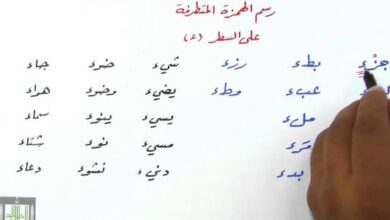 رسم الهمزة المتطرفة
على السطر (ء)
جزْء بطء رزء شيء ضوء جاء
عبء وطء يضيء وضوء هواء
ملء يسيء ينوء سماء
مَرء مسيء نوء شتاء
بدء دنيء نشوء دعاء